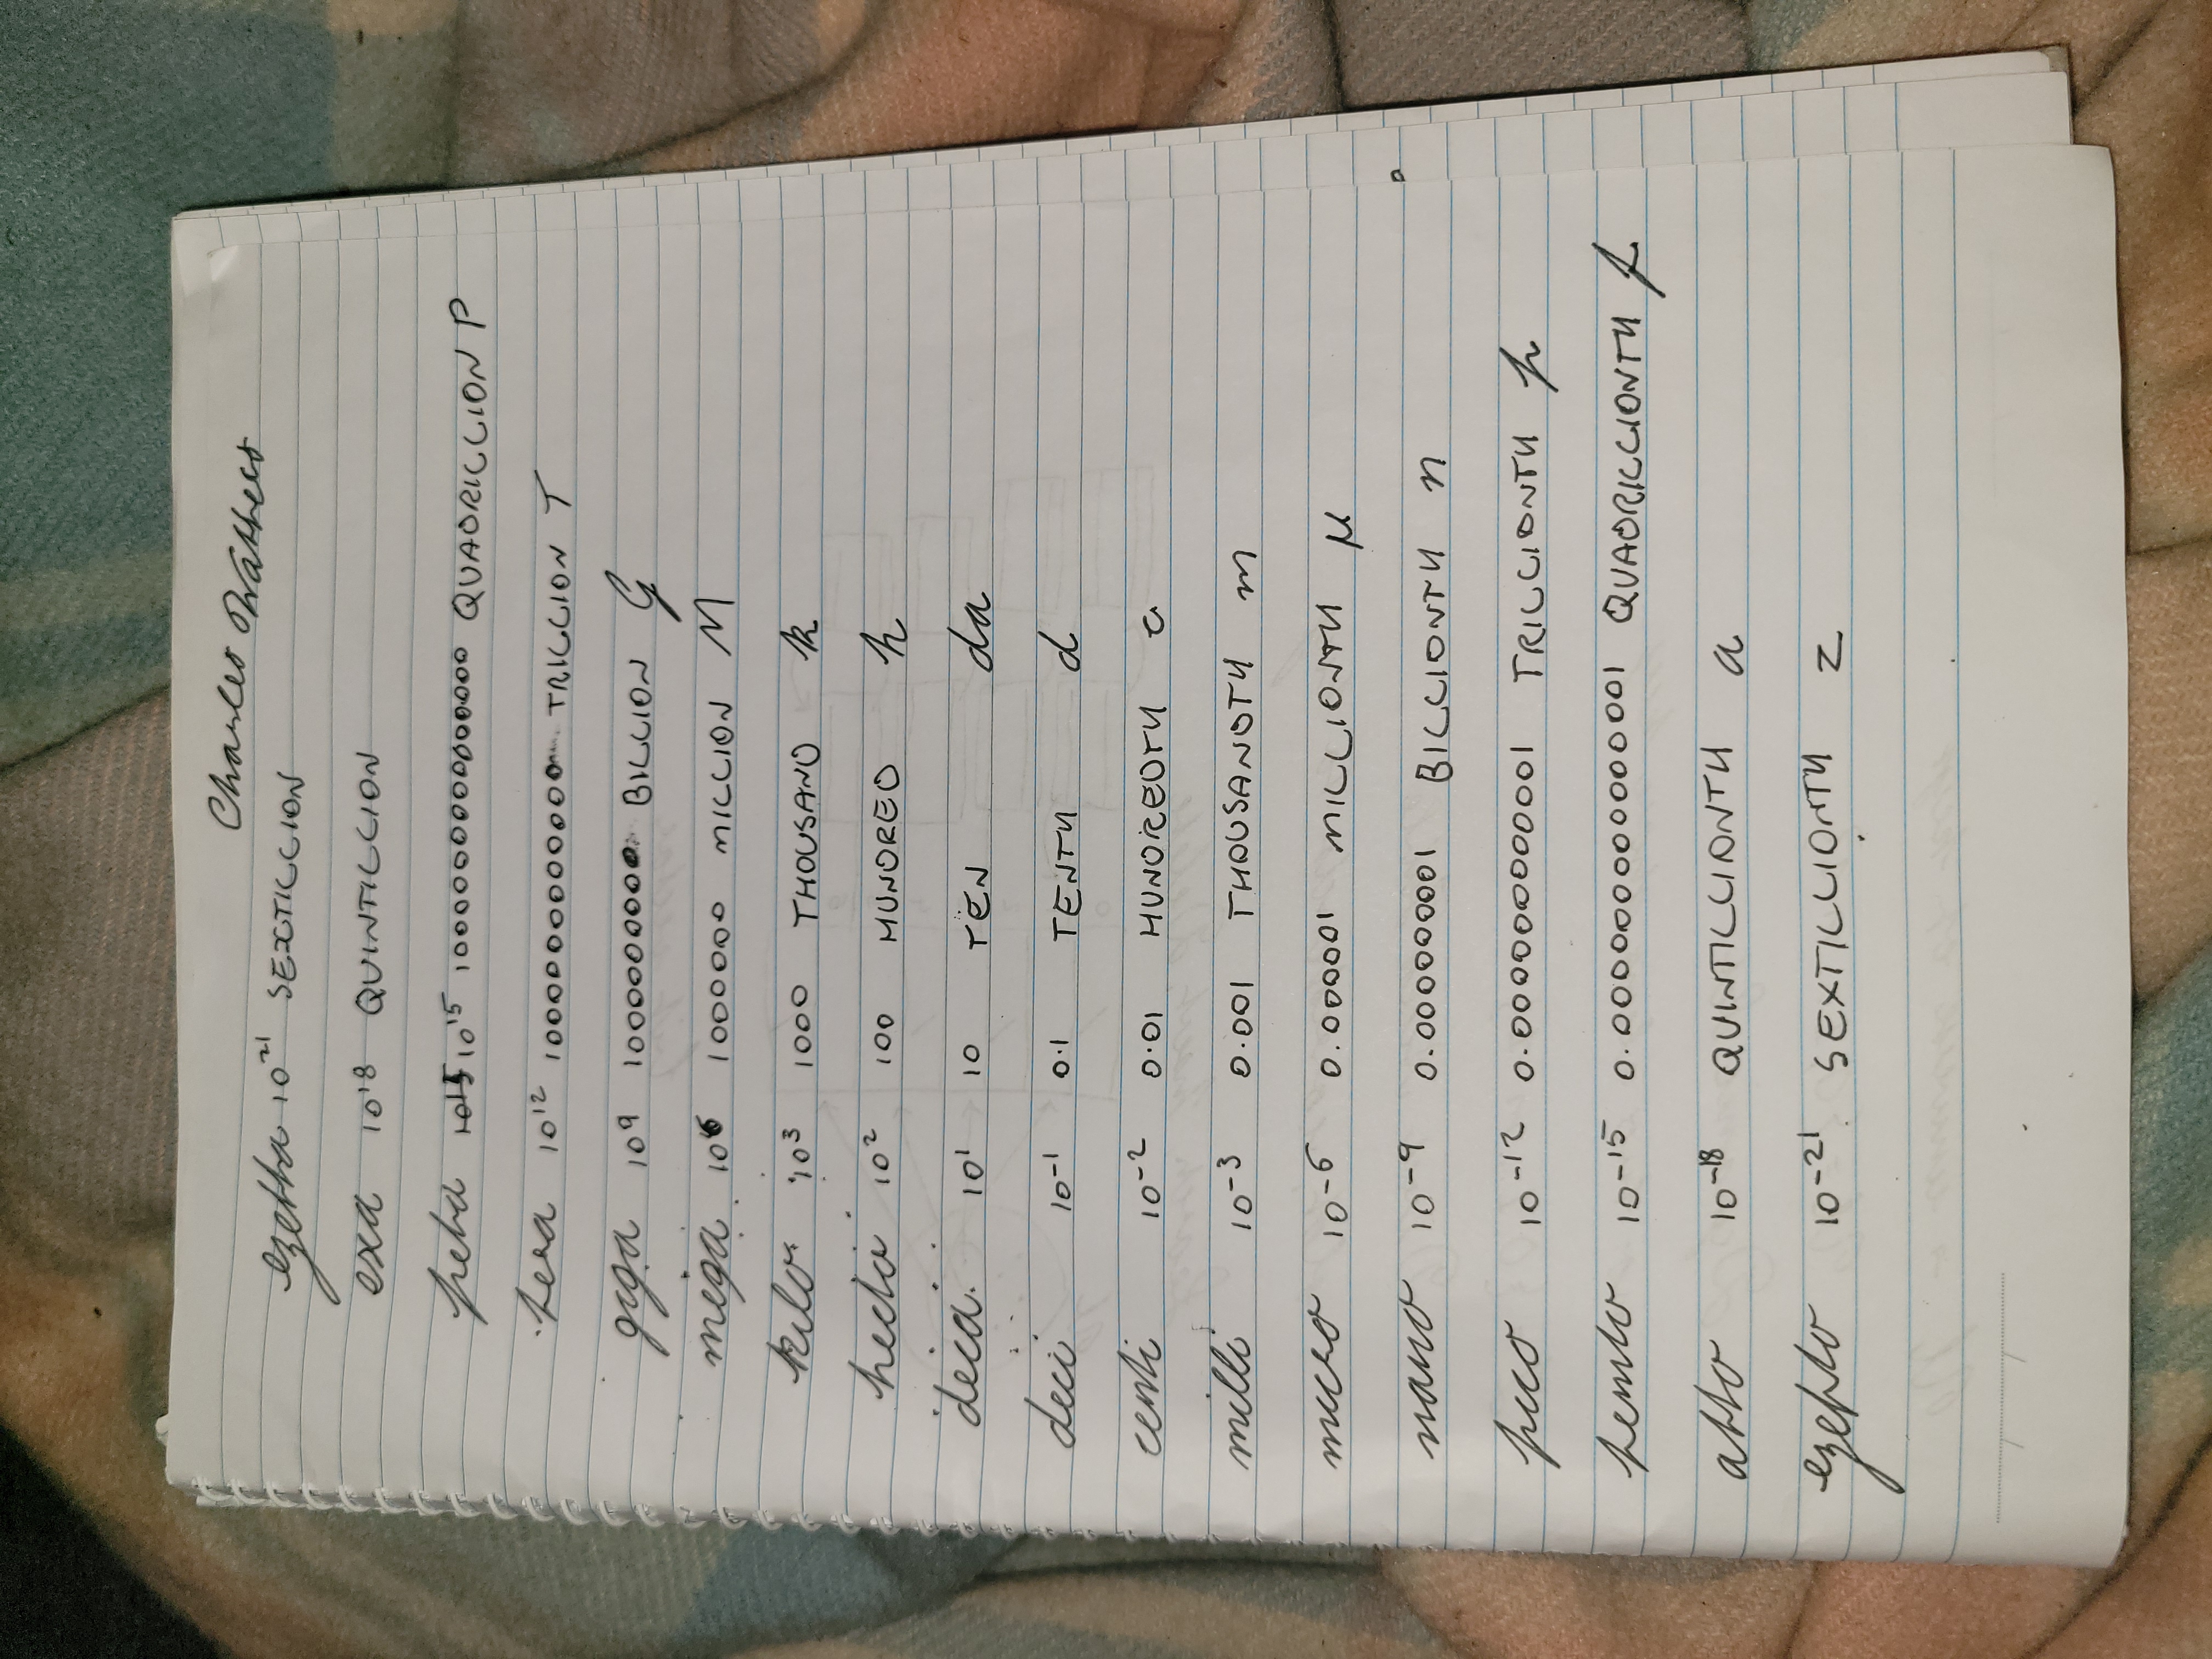 Charles Watters
ezetta 10²¹ SEXTILLION
exa 10¹⁸ QUINTILLION
peta 10¹⁵ 10¹⁵ 1000000000000000 QUADRILLION P
tera 10¹² 1000000000000 TRILLION T
giga 10⁹ 1000000000 BILLION G
mega 10⁶ 1000000 MILLION M
kilo 10³ 1000 THOUSAND k
hecto 10² 100 HUNDRED h
deca 10¹ 10 TEN da
deci 10⁻¹ 0.1 TENTH d
centi 10⁻² 0.01 HUNDREDTH c
milli 10⁻³ 0.001 THOUSANDTH m
micro 10⁻⁶ 0.000001 MILLIONTH μ
nano 10⁻⁹ 0.000000001 BILLIONTH n
pico 10⁻¹² 0.000000000001 TRILLIONTH p
femto 10⁻¹⁵ 0.000000000000001 QUADRILLIONTH f
atto 10⁻¹⁸ QUINTILLIONTH a
ezepto 10⁻²¹ SEXTILLIONTH z